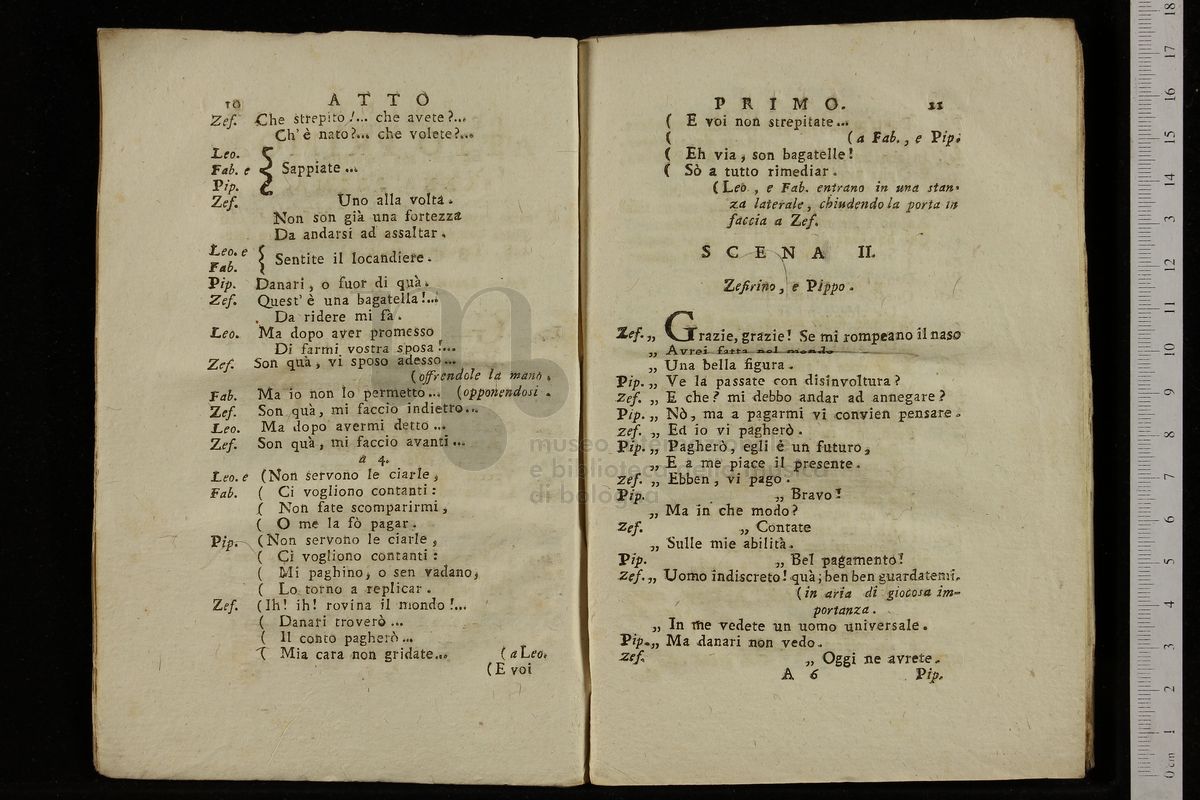 10 ATTO
Zef. Che strepito!... che avete?...
Ch'è nato?... che volete?...
Leo.
Fab. e { Sappiate...
Pip.
Zef. Uno alla volta.
Non son già una fortezza
Da andarsi ad assaltar.
Leo. e
Fab. { Sentite il locandiere.
Pip. Danari, o fuor di quà.
Zef. Quest'è una bagatella!...
Da ridere mi fà.
Leo. Ma dopo aver promesso
Di farmi vostra sposa!...
Zef. Son quà, vi sposo adesso...
(offrendole la mano.
Fab. Ma io non lo permetto... (opponendosi.
Zef. Son quà, mi faccio indietro...
Leo. Ma dopo avermi detto...
Zef. Son quà, mi faccio avanti...
a 4.
Leo. e (Non servono le ciarle,
Fab. ( Ci vogliono contanti:
( Non fate scomparirmi,
( O me la fò pagar.
Pip. (Non servono le ciarle,
( Ci vogliono contanti:
( Mi paghino, o sen vadano,
( Lo torno a replicar.
Zef. (Ih! ih! rovina il mondo!...
( Danari troverò...
( Il conto pagherò...
( Mia cara non gridate... (a Leo.
(E voi
PRIMO. 11
( E voi non strepitate...
( (a Fab., e Pip.
( Eh via, son bagatelle!
( Sò a tutto rimediar.
(Leo., e Fab. entrano in una stan-
za laterale, chiudendo la porta in
faccia a Zef.
SCENA II.
Zefirino, e Pippo.
Zef. „ Grazie, grazie! Se mi rompeano il naso
„ Avrei fatta nel mondo
„ Una bella figura.
Pip. „ Ve la passate con disinvoltura?
Zef. „ E che? mi debbo andar ad annegare?
Pip. „ Nò, ma a pagarmi vi convien pensare.
Zef. „ Ed io vi pagherò.
Pip. „ Pagherò, egli è un futuro,
„ E a me piace il presente.
Zef. „ Ebben, vi pago.
Pip. „ Bravo!
„ Ma in che modo?
Zef. „ Contate
„ Sulle mie abilità.
Pip. „ Bel pagamento!
Zef. „ Uomo indiscreto! quà; ben ben guardatemi.
(in aria di giocosa im-
portanza.
„ In me vedete un uomo universale.
Pip. „ Ma danari non vedo.
Zef. „ Oggi ne avrete.
A 6 Pip.
museo internazionale
e biblioteca della musica
di bologna
0 cm 1 2 3 4 5 6 7 8 9 10 11 12 13 14 15 16 17 18